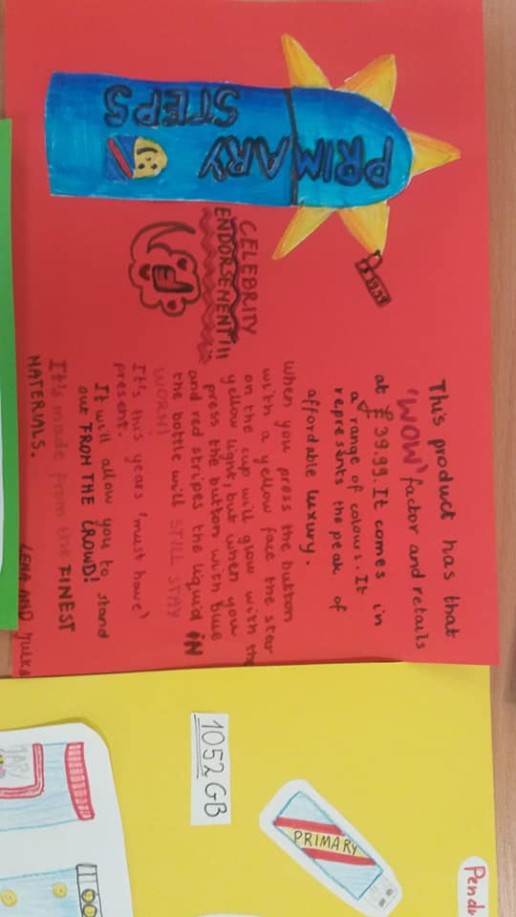 PRIMARY
STEPS
CELEBRITY
ENDORSEMENT!!!
This product has that
'WOW' factor and retails
at £39.99. It comes in
a range of colours. It
represents the peak of
affordable luxury.
When you press the button
with a yellow face the star
on the cup will glow with the
yellow light, but when you
press the button with blue
and red stripes the liquid IN
the bottle will STILL STAY
WORM!
It's this years 'must have'
present.
It will allow you to stand
out FROM THE CROWD!
It's made from the FINEST
MATERIALS.
LENA AND Julka
1052 GB
PRIMARY